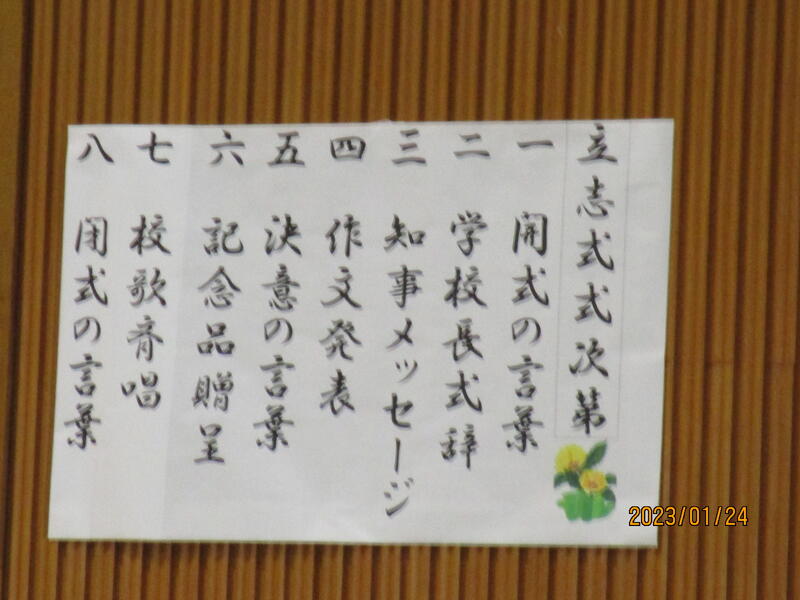 立志式式次第
一 開式の言葉
二 学校長式辞
三 知事メッセージ
四 作文発表
五 決意の言葉
六 記念品贈呈
七 校歌斉唱
八 閉式の言葉
2023/01/24